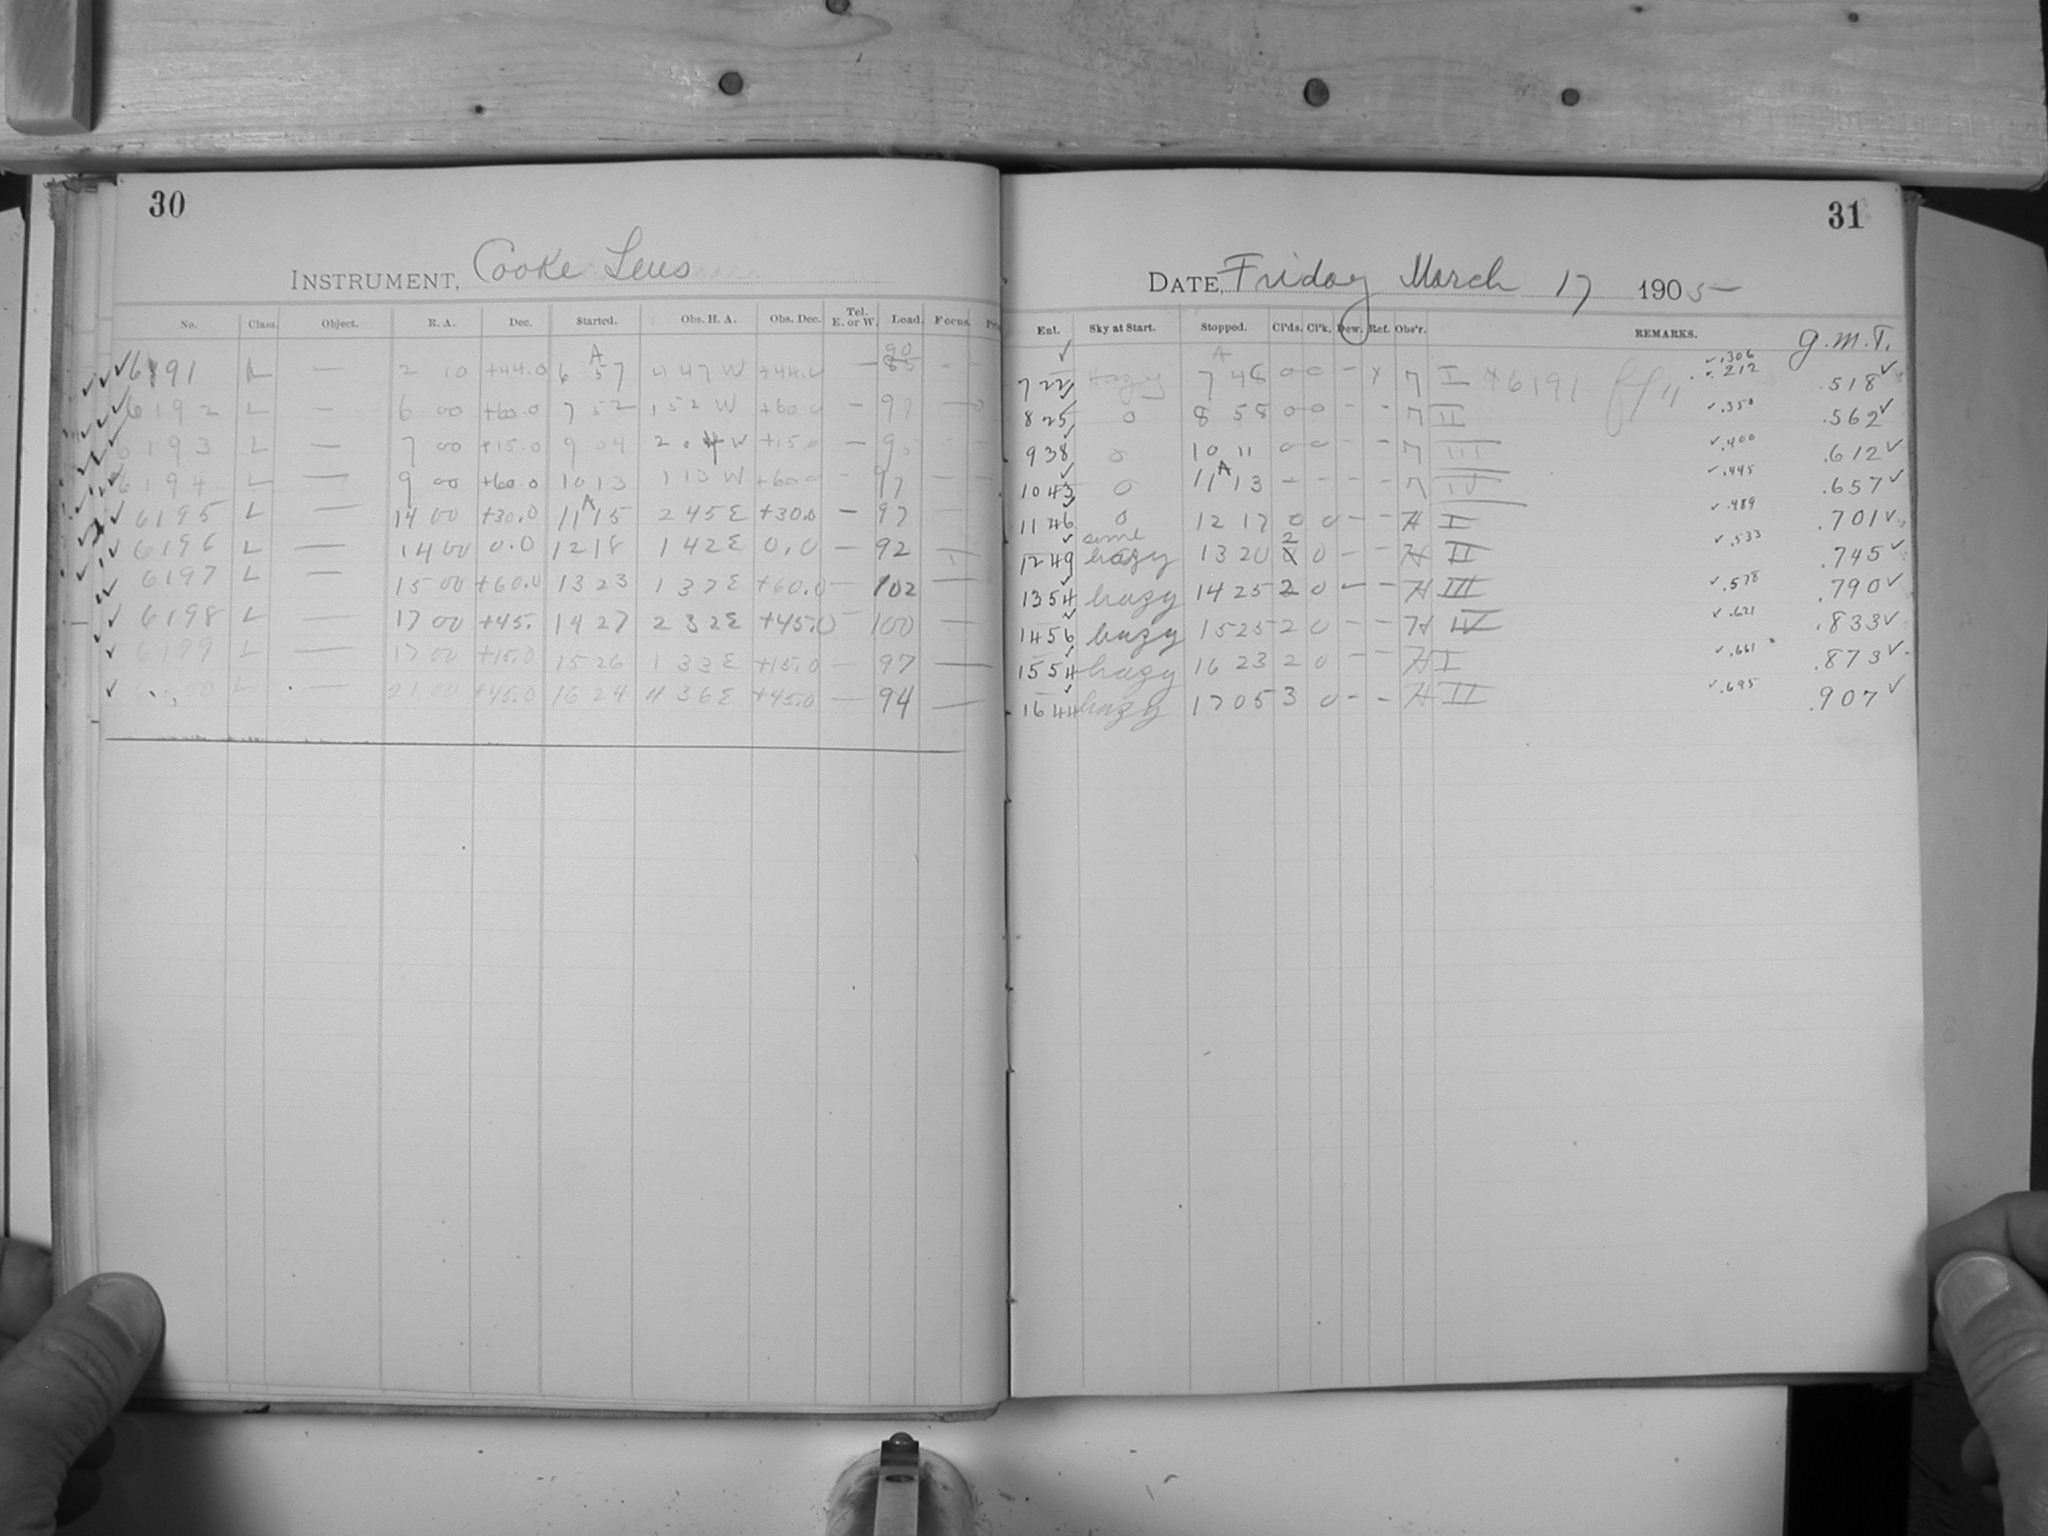 30
INSTRUMENT, Cooke Lens
No. Class. Object. R. A. Dec. Started. Obs. H. A. Obs. Dec. Tel. E. or W. Load. Focus.
90
✓ 6191 L — 2 10 +44.0 6 A 57 4 47 W +44.0 — 85 -
✓ 6192 L — 6 00 +60.0 7 52 1 52 W +60.0 — 97 —
✓ 6193 L — 7 00 +15.0 9 04 2 04 W +15.0 — -
✓ 6194 L — 9 00 +60.0 10 13 1 13 W +60.0 - 97 —
✓ 6195 L — 14 00 +30.0 11 A 15 2 45 E +30.0 — 97 —
✓ 6196 L — 14 00 0.0 12 18 1 42 E 0.0 — 92 —
✓ 6197 L — 15 00 +60.0 13 23 1 37 E +60.0 — 102 —
✓ 6198 L — 17 00 +45. 14 27 2 32 E +45.0 — 100 —
✓ 6199 L — 17 00 +15.0 15 26 1 33 E +15.0 — 97 —
✓ 00 L — 21 00 +45.0 16 24 4 36 E +45.0 — 94 —
31
DATE, Friday March 17 1905
Ent. Sky at Start. Stopped. Cl'ds. Cl'k. Dew. Ref. Obs'r. REMARKS. G.M.T.
✓ .306
7 22 ✓ Hazy 7 A 48 0 0 - x 7 I x 6191 ✓ .212 .518 ✓
8 25 ✓ 0 8 58 0 0 - - 7 II ✓ .350 .562 ✓
9 38 ✓ 0 10 11 0 0 - - 7 III ✓ .400 .612 ✓
10 43 ✓ 0 11 A 13 - - - - 7 IV ✓ .445 .657 ✓
11 46 ✓ 0 12 17 0 0 - - H I ✓ .489 .701 ✓
12 49 ✓ some hazy 13 20 2 0 - - H II ✓ .533 .745 ✓
13 54 ✓ hazy 14 25 2 0 - - H III ✓ .578 .790 ✓
14 56 ✓ hazy 15 25 2 0 - - H IV ✓ .621 .833 ✓
15 54 ✓ hazy 16 23 2 0 - - H I ✓ .661 .873 ✓
16 44 ✓ hazy 17 05 3 0 - - H II ✓ .695 .907 ✓